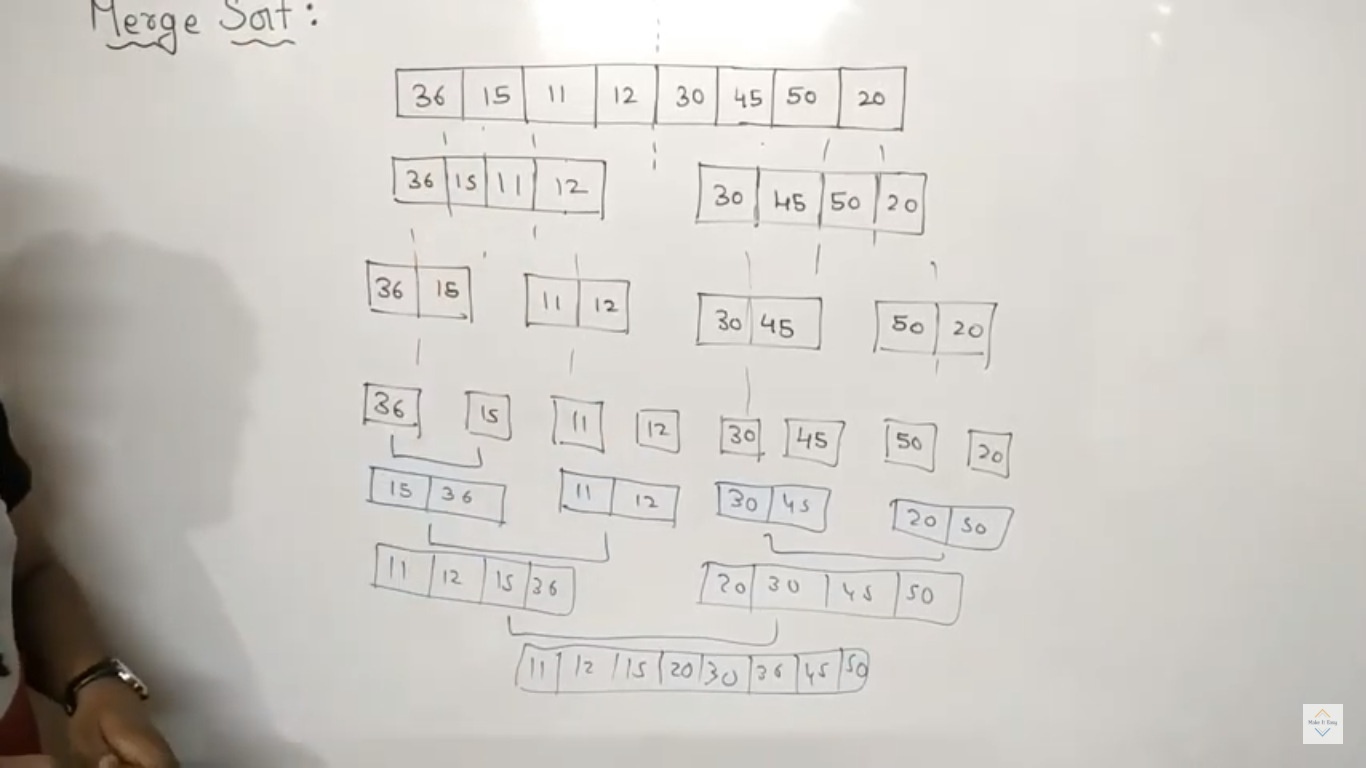 Merge Sort:
36 15 11 12 30 45 50 20
36 15 11 12 30 45 50 20
36 15 11 12 30 45 50 20
36 15 11 12 30 45 50 20
15 36 11 12 30 45 20 50
11 12 15 36 20 30 45 50
11 12 15 20 30 36 45 50
Make It Easy